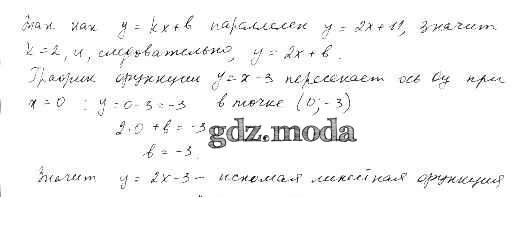 Так как y = kx + b параллелен y = 2x + 11, значит
k = 2, и, следовательно, y = 2x + b.
График функции y = x - 3 пересекает ось Oy при
x = 0 : y = 0 - 3 = -3 в точке (0; -3)
2·0 + b = -3
gdz.moda
b = -3.
Значит y = 2x - 3 - искомая линейная функция